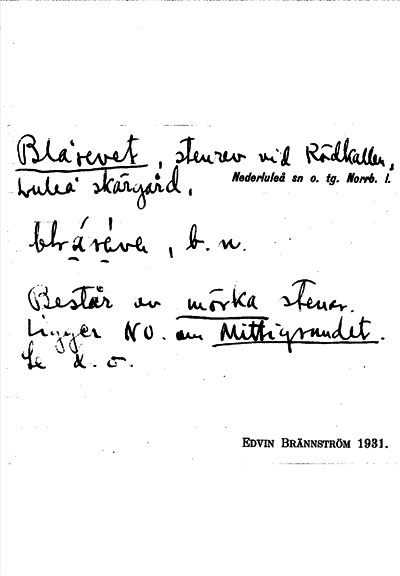 Blårevet, stenrev vid Rödkallen,
Luleå skärgård. Nederluleå sn o. tg. Norrb. l.
b. n.
Består av mörka stenar.
Ligger NO. om Mittigrundet.
Se d. o.
EDVIN BRÄNNSTRÖM 1931.